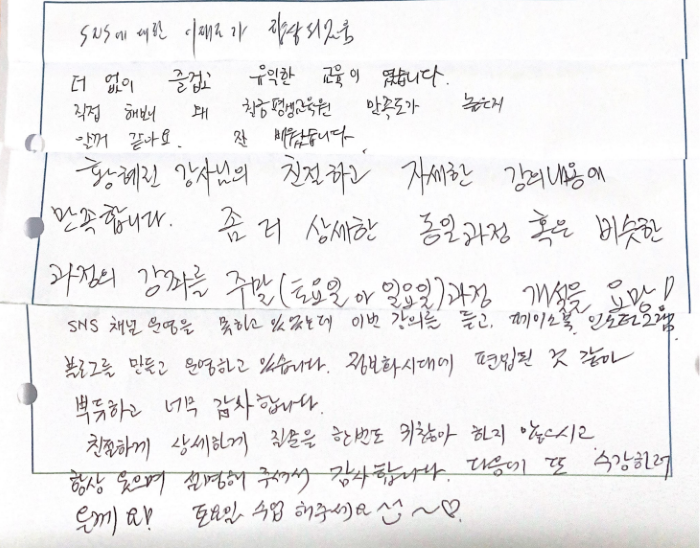 SNS에 대한 이해도가 향상되었음
더 없이 즐겁고 유익한 교육이 였습니다.
직접 해보니 왜 평생교육원 만족도가 높은지
알꺼 같아요. 잘 배웠습니다.
황혜진 강사님의 친절하고 자세한 강의내용에
만족합니다. 좀 더 상세한 동일과정 혹은 비슷한
과정의 강좌를 주말(토요일 or 일요일)과정 개설을 요망!
SNS 채널 운영을 못하고 있었는데 이번 강의를 듣고, 페이스북, 인스타그램,
블로그를 만들고 운영하고 있습니다. 정보화시대에 편입된 것 같아
뿌듯하고 너무 감사합니다.
친절하게 상세하게 질문을 한번도 귀찮아 하지 않으시고
항상 웃으며 설명해 주셔서 감사합니다. 다음에 또 수강하러
올께요! 토요일 수업 해주세요 ~♡.